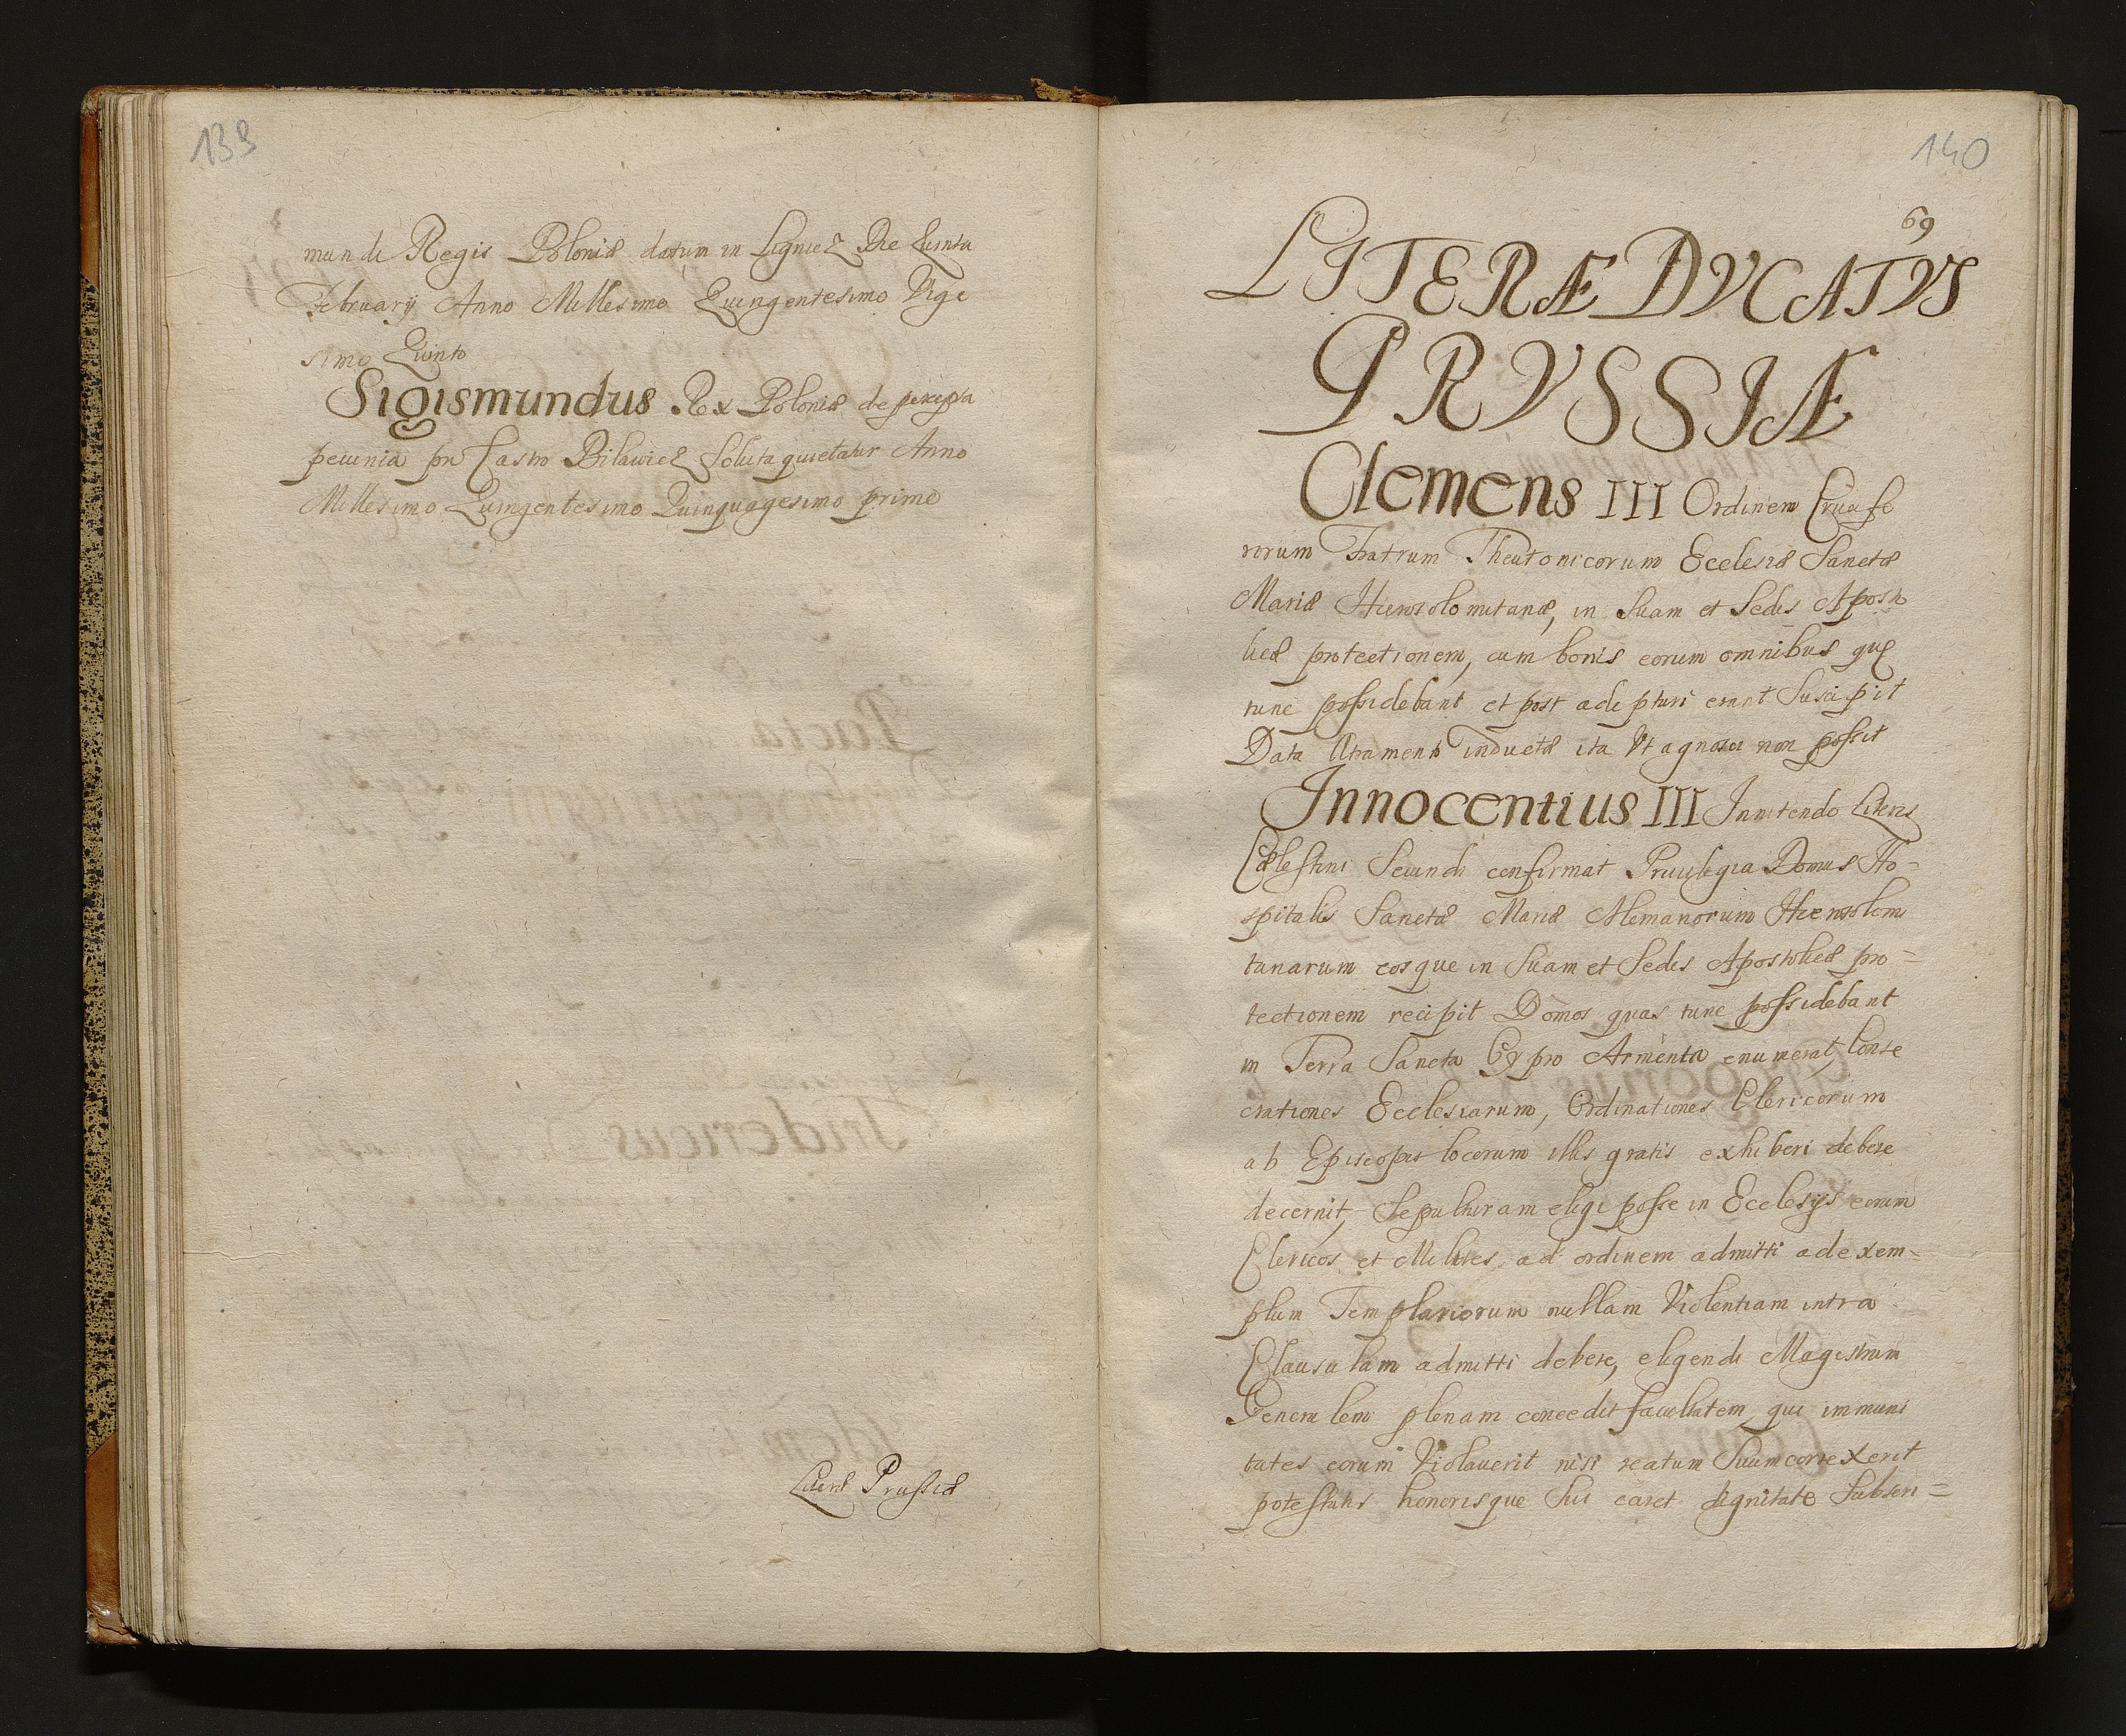 139
mundi Regis Poloniæ datum in Lignicz Die Quinta
February Anno Millesimo Quingentesimo Vige
simo Quinto
Sigismundus Rex Poloniæ de percepta
pecunia pro Castro Bilawicz Soluta quietatur Anno
Millesimo Quingentesimo Quinquagesimo primo
Literæ Prussiæ
140
69
LITERÆ DVCATVS
PRVSSIÆ
Clemens III Ordinem Crucife
rorum Fratrum Theutonicorum Ecclesiæ Sanctæ
Mariæ Hierosolomitanæ, in Suam et Sedis Aposto
licæ protectionem, cum bonis eorum omnibus quę
tunc possidebant et post adepturi erant Suscipit
Data Atramento inducta ita Vt agnosci non possit
Innocentius III Innitendo Literis
Cælestini Secundi confirmat Priuilegia Domus Ho-
spitalis Sanctæ Mariæ Alemanorum Hierosolomi
tanarum eosque in Suam et Sedis Apostolicæ pro=
tectionem recipit Domos quas tunc possidebant
in Terra Sancta Cypro Armenia enumerat, Conse
crationes Ecclesiarum, Ordinationes Clericorum
ab Episcopis locorum illis gratis exhiberi debere
decernit, Sepulturam eligi posse in Ecclesijs eorum
Clericos et Milites ad ordinem admitti ad exem-
plum Templariorum nullam Violentiam intra
Clausulam admitti debere, eligendi Magistrum
Generalem plenam concedit facultatem, qui immuni
tates eorum Violauerit nisi reatum Suum correxerit
potestatis honorisque Sui caret dignitate Subscri=